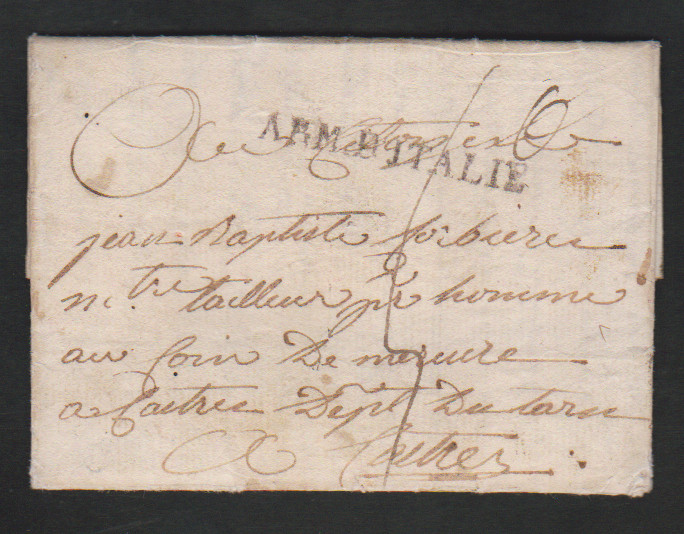 Au Citoyen
ARM. D'ITALIE
jean Baptiste Sorbieres
m. tre tailleur pr homme
au Coin De mercure
a Castres Dept Du tarn
A Castres